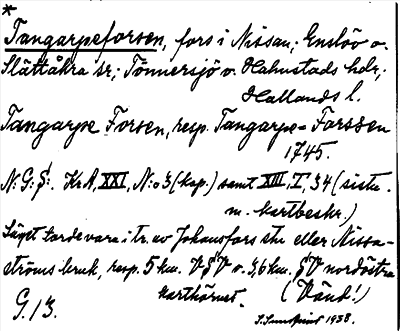 *
Tangarpeforsen, fors i Nissan; Enslöv o.
Slättåkra sr; Tönnersjö o. Halmstads hdr;
Hallands l.
Tangarpe Forsen, resp. Tangarpe-Forssen
1745.
N:G:S: Kr.A, XXI, N:o 3 (kop.) samt XIII, I, 34 (
m. kartbeskr.)
Läget torde vara i tr. av Johansfors stn eller Nissa-
ströms bruk, resp. 5 km. VSV o. 3,6 km. SV nordöstra
karthörnet. (Vänd!)
G. 13. 1938.